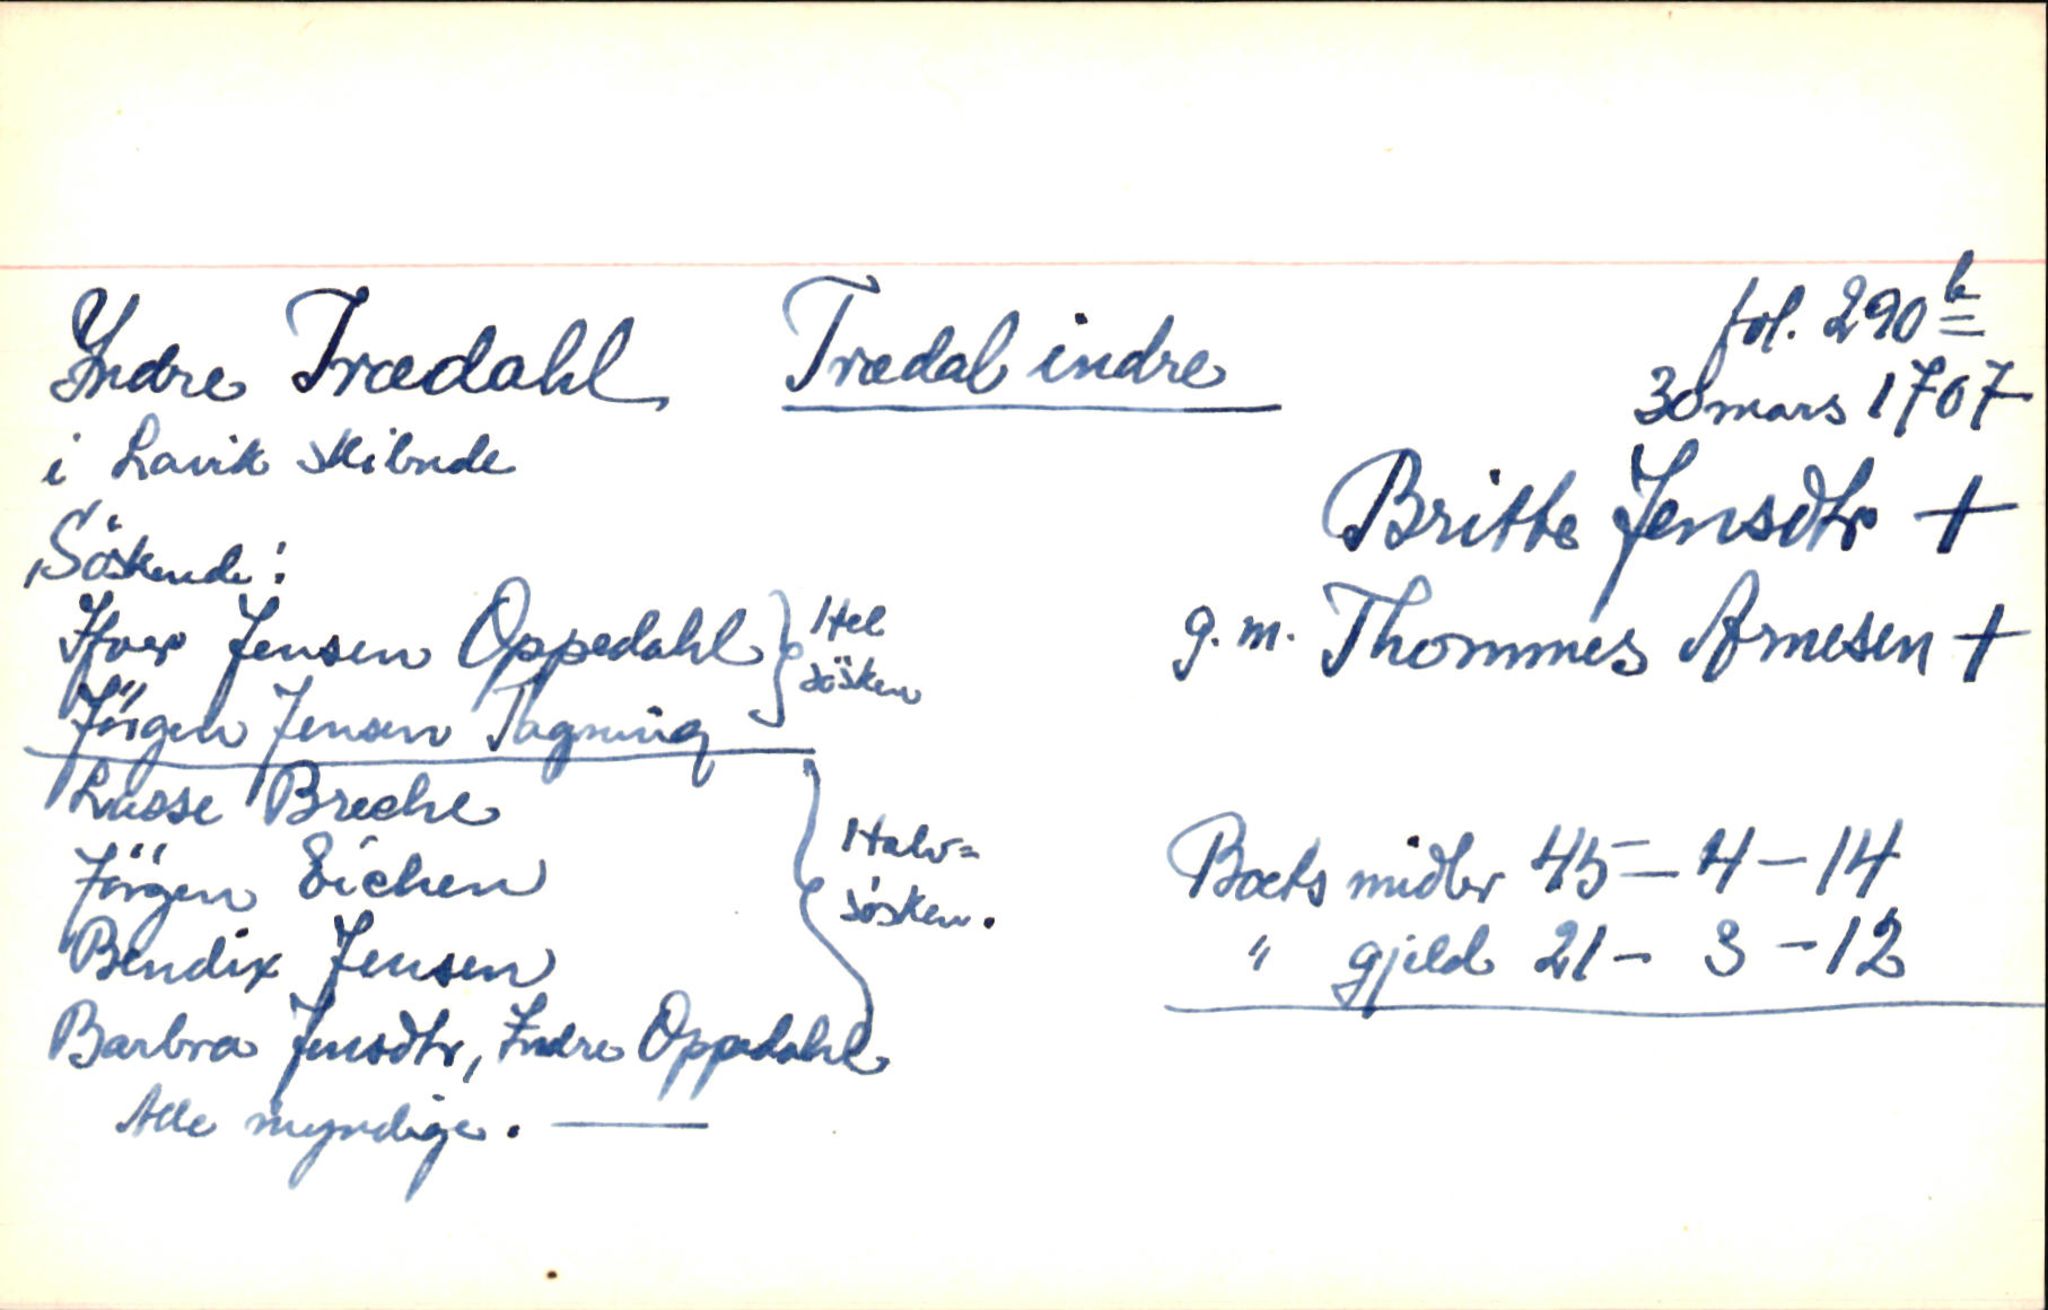 Yndre Trædahl Trædal indre
i Lavik skibrede
fol. 290 b
30 mars 1707
Britte Jensdtr +
g.m. Thommes Arnesen +
Söskende:
Ifver Jensen Oppedahl
Jörgen Jensen Tagning
Hel
sösken
Lasse Breche
Jörgen Eichen
Bendix Jensen
Barbra Jensdtr, Indre Oppedahl
Halv=
søsken.
Alle myndige.
Boets midler 45 - 4 - 14
" gjeld 21 - 3 - 12